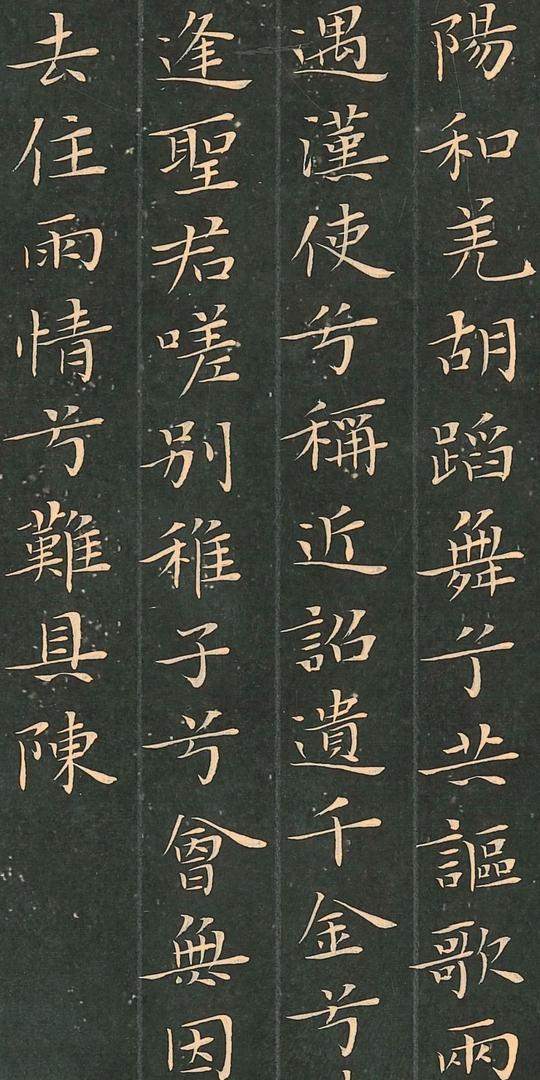 陽和羌胡蹈舞兮共謳歌兩
遇漢使兮稱近詔遺千金兮
逢聖君嗟別稚子兮會無因
去住兩情兮難具陳